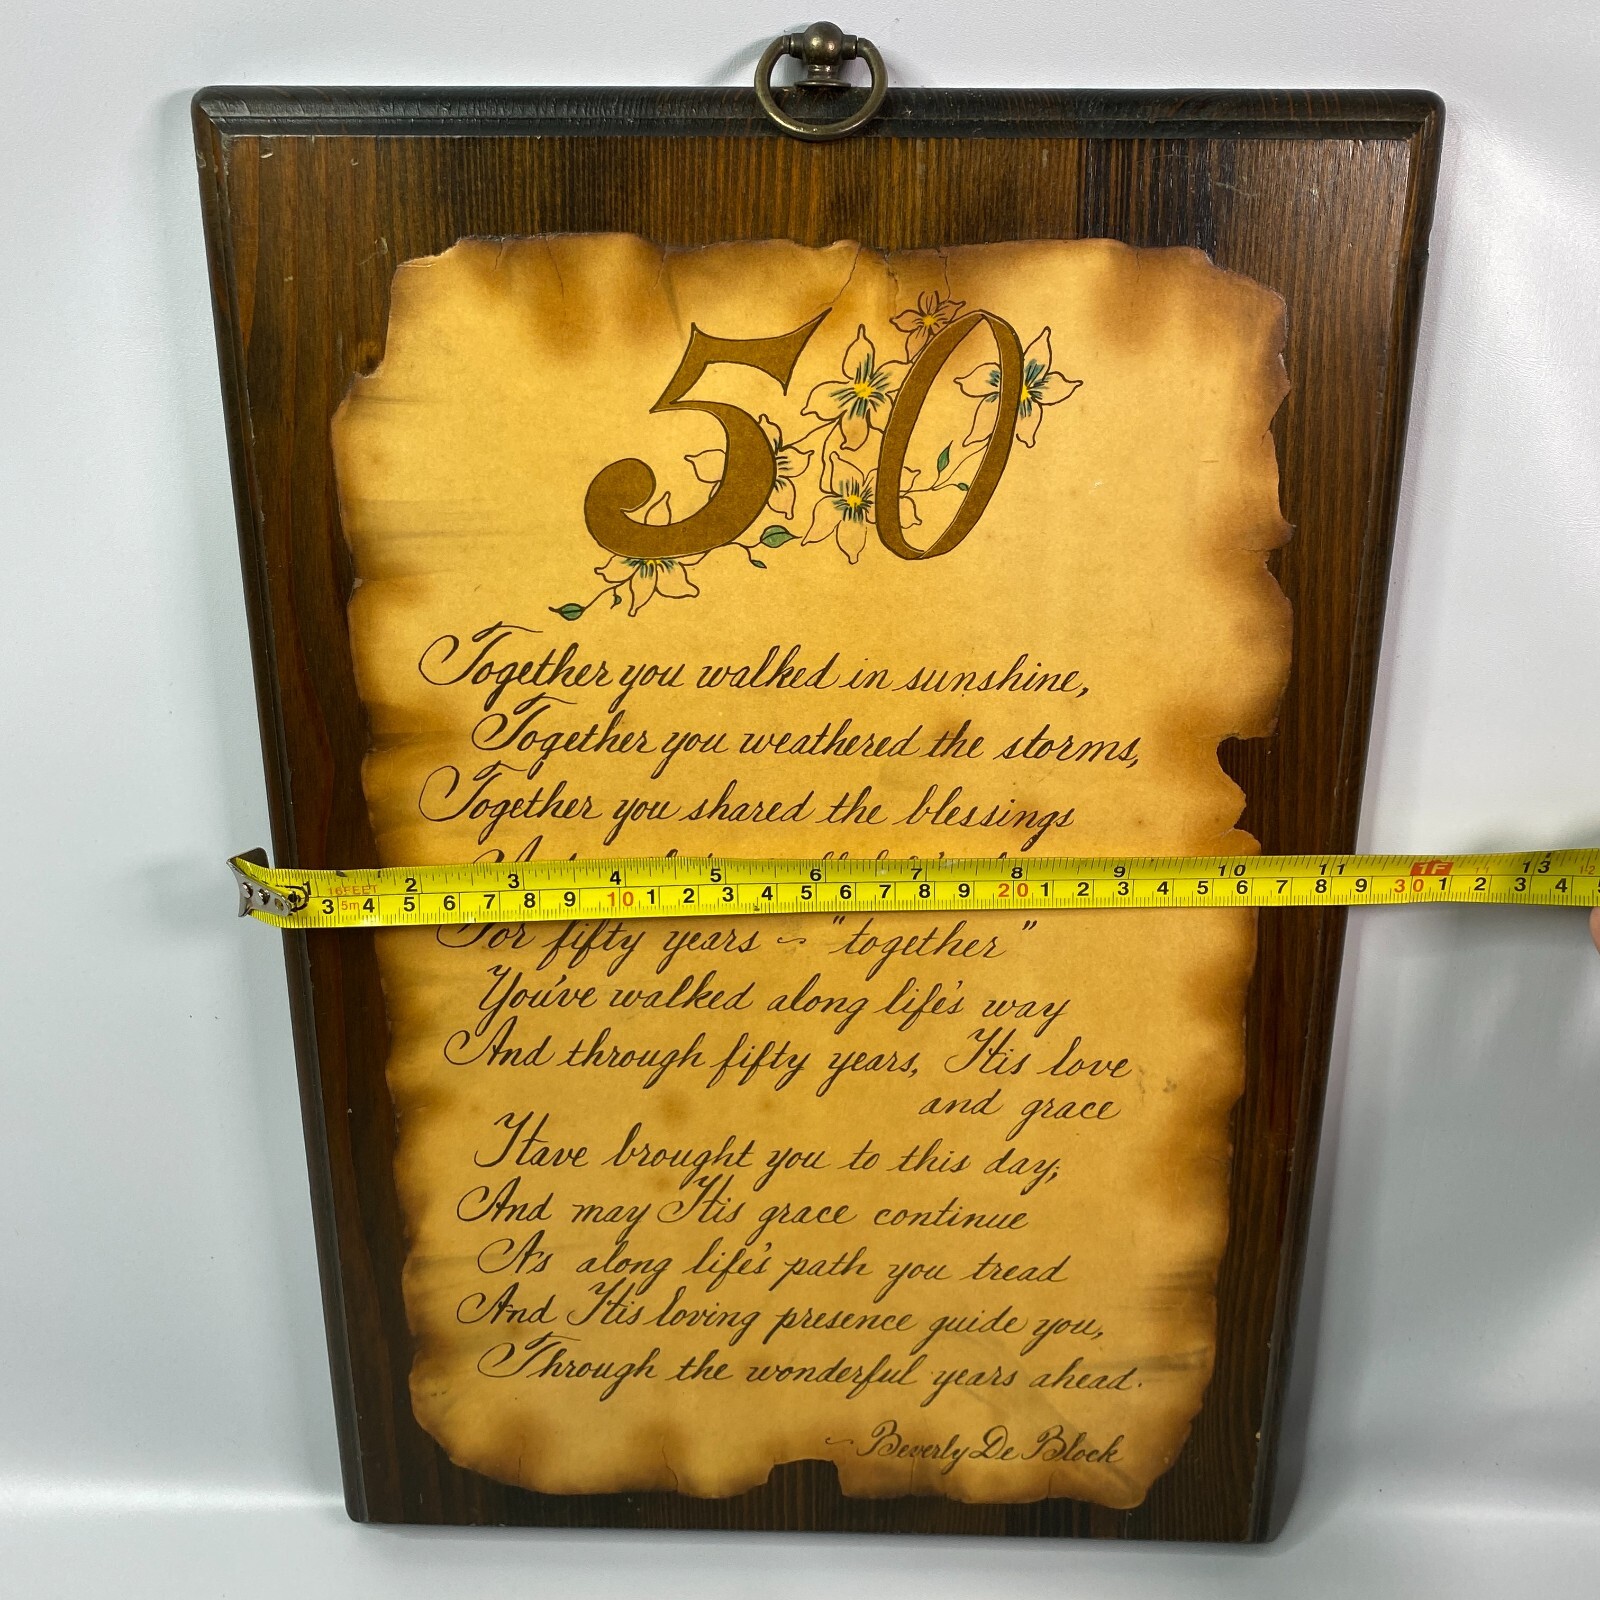 50
Together you walked in sunshine,
Together you weathered the storms,
Together you shared the blessings
For fifty years ~ "together"
You've walked along life's way
And through fifty years, His love
and grace
Have brought you to this day;
And may His grace continue
As along life's path you tread
And His loving presence guide you,
Through the wonderful years ahead.
~ Beverly De Block
16FEET 2 3 4 5 6 7 8 9 10 11 1F 13 1/2
3 5m 4 5 6 7 8 9 10 1 2 3 4 5 6 7 8 9 20 1 2 3 4 5 6 7 8 9 30 1 2 3 4 5